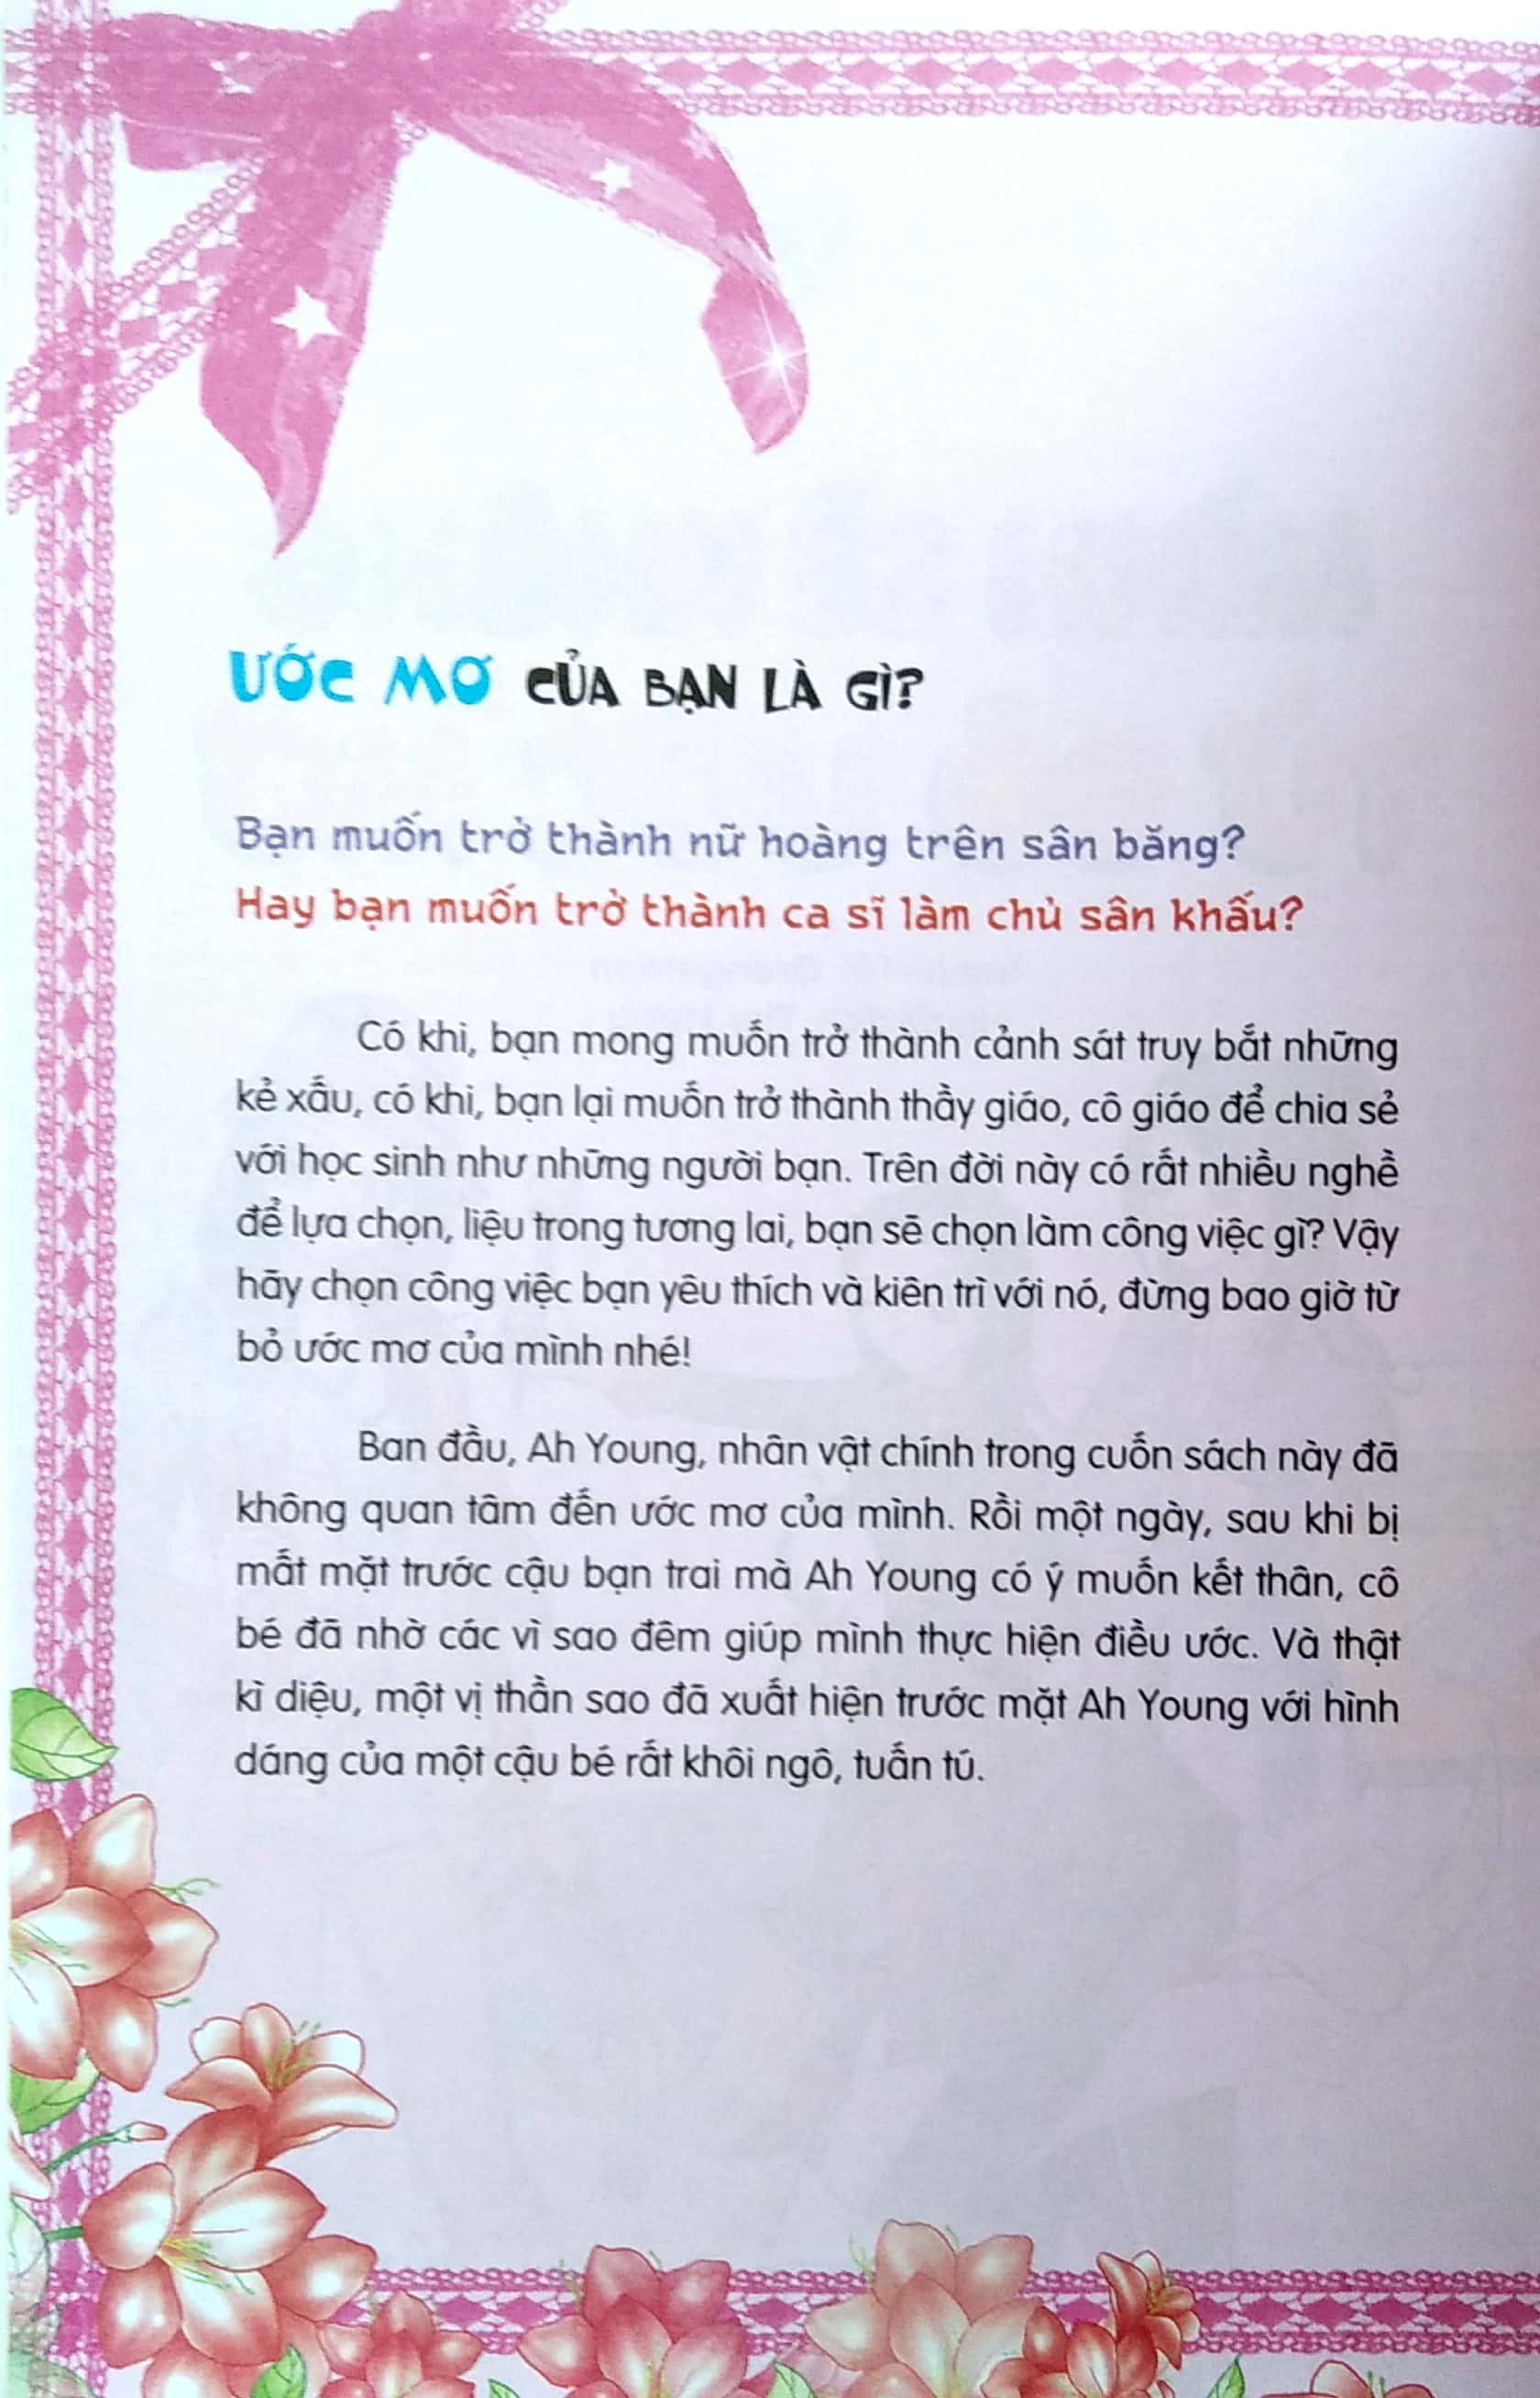 ƯỚC MƠ CỦA BẠN LÀ GÌ?
Bạn muốn trở thành nữ hoàng trên sân băng?
Hay bạn muốn trở thành ca sĩ làm chủ sân khấu?
Có khi, bạn mong muốn trở thành cảnh sát truy bắt những
kẻ xấu, có khi, bạn lại muốn trở thành thầy giáo, cô giáo để chia sẻ
với học sinh như những người bạn. Trên đời này có rất nhiều nghề
để lựa chọn, liệu trong tương lai, bạn sẽ chọn làm công việc gì? Vậy
hãy chọn công việc bạn yêu thích và kiên trì với nó, đừng bao giờ từ
bỏ ước mơ của mình nhé!
Ban đầu, Ah Young, nhân vật chính trong cuốn sách này đã
không quan tâm đến ước mơ của mình. Rồi một ngày, sau khi bị
mất mặt trước cậu bạn trai mà Ah Young có ý muốn kết thân, cô
bé đã nhờ các vì sao đêm giúp mình thực hiện điều ước. Và thật
kì diệu, một vị thần sao đã xuất hiện trước mặt Ah Young với hình
dáng của một cậu bé rất khôi ngô, tuấn tú.